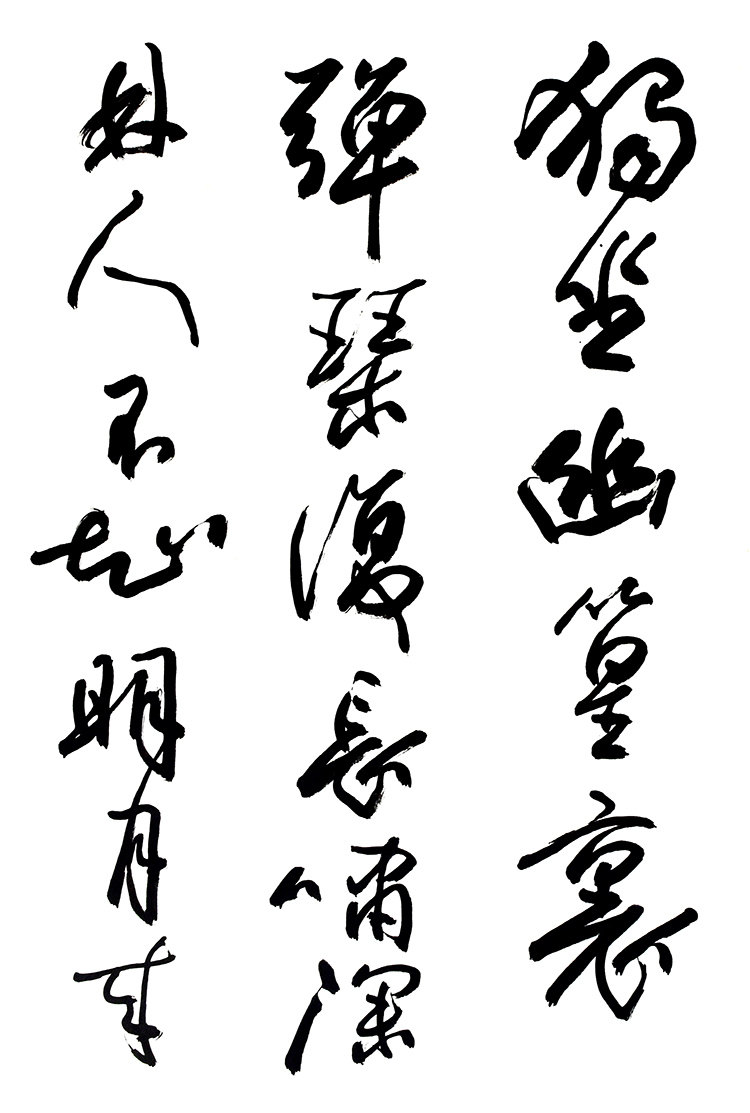 獨坐幽篁裏
弹琴復長嘯深
林人不知明月来